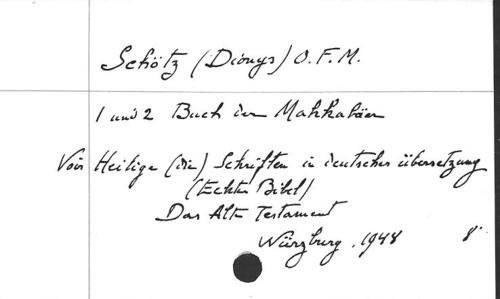 Schötz (Dionys) O.F.M.
1 und 2 Buch der Makkabäer
Voir Heilige (die) Schriften in deutscher übersetzung
(Echter Bibel)
Das Alte Testament
Würzburg, 1948 8°